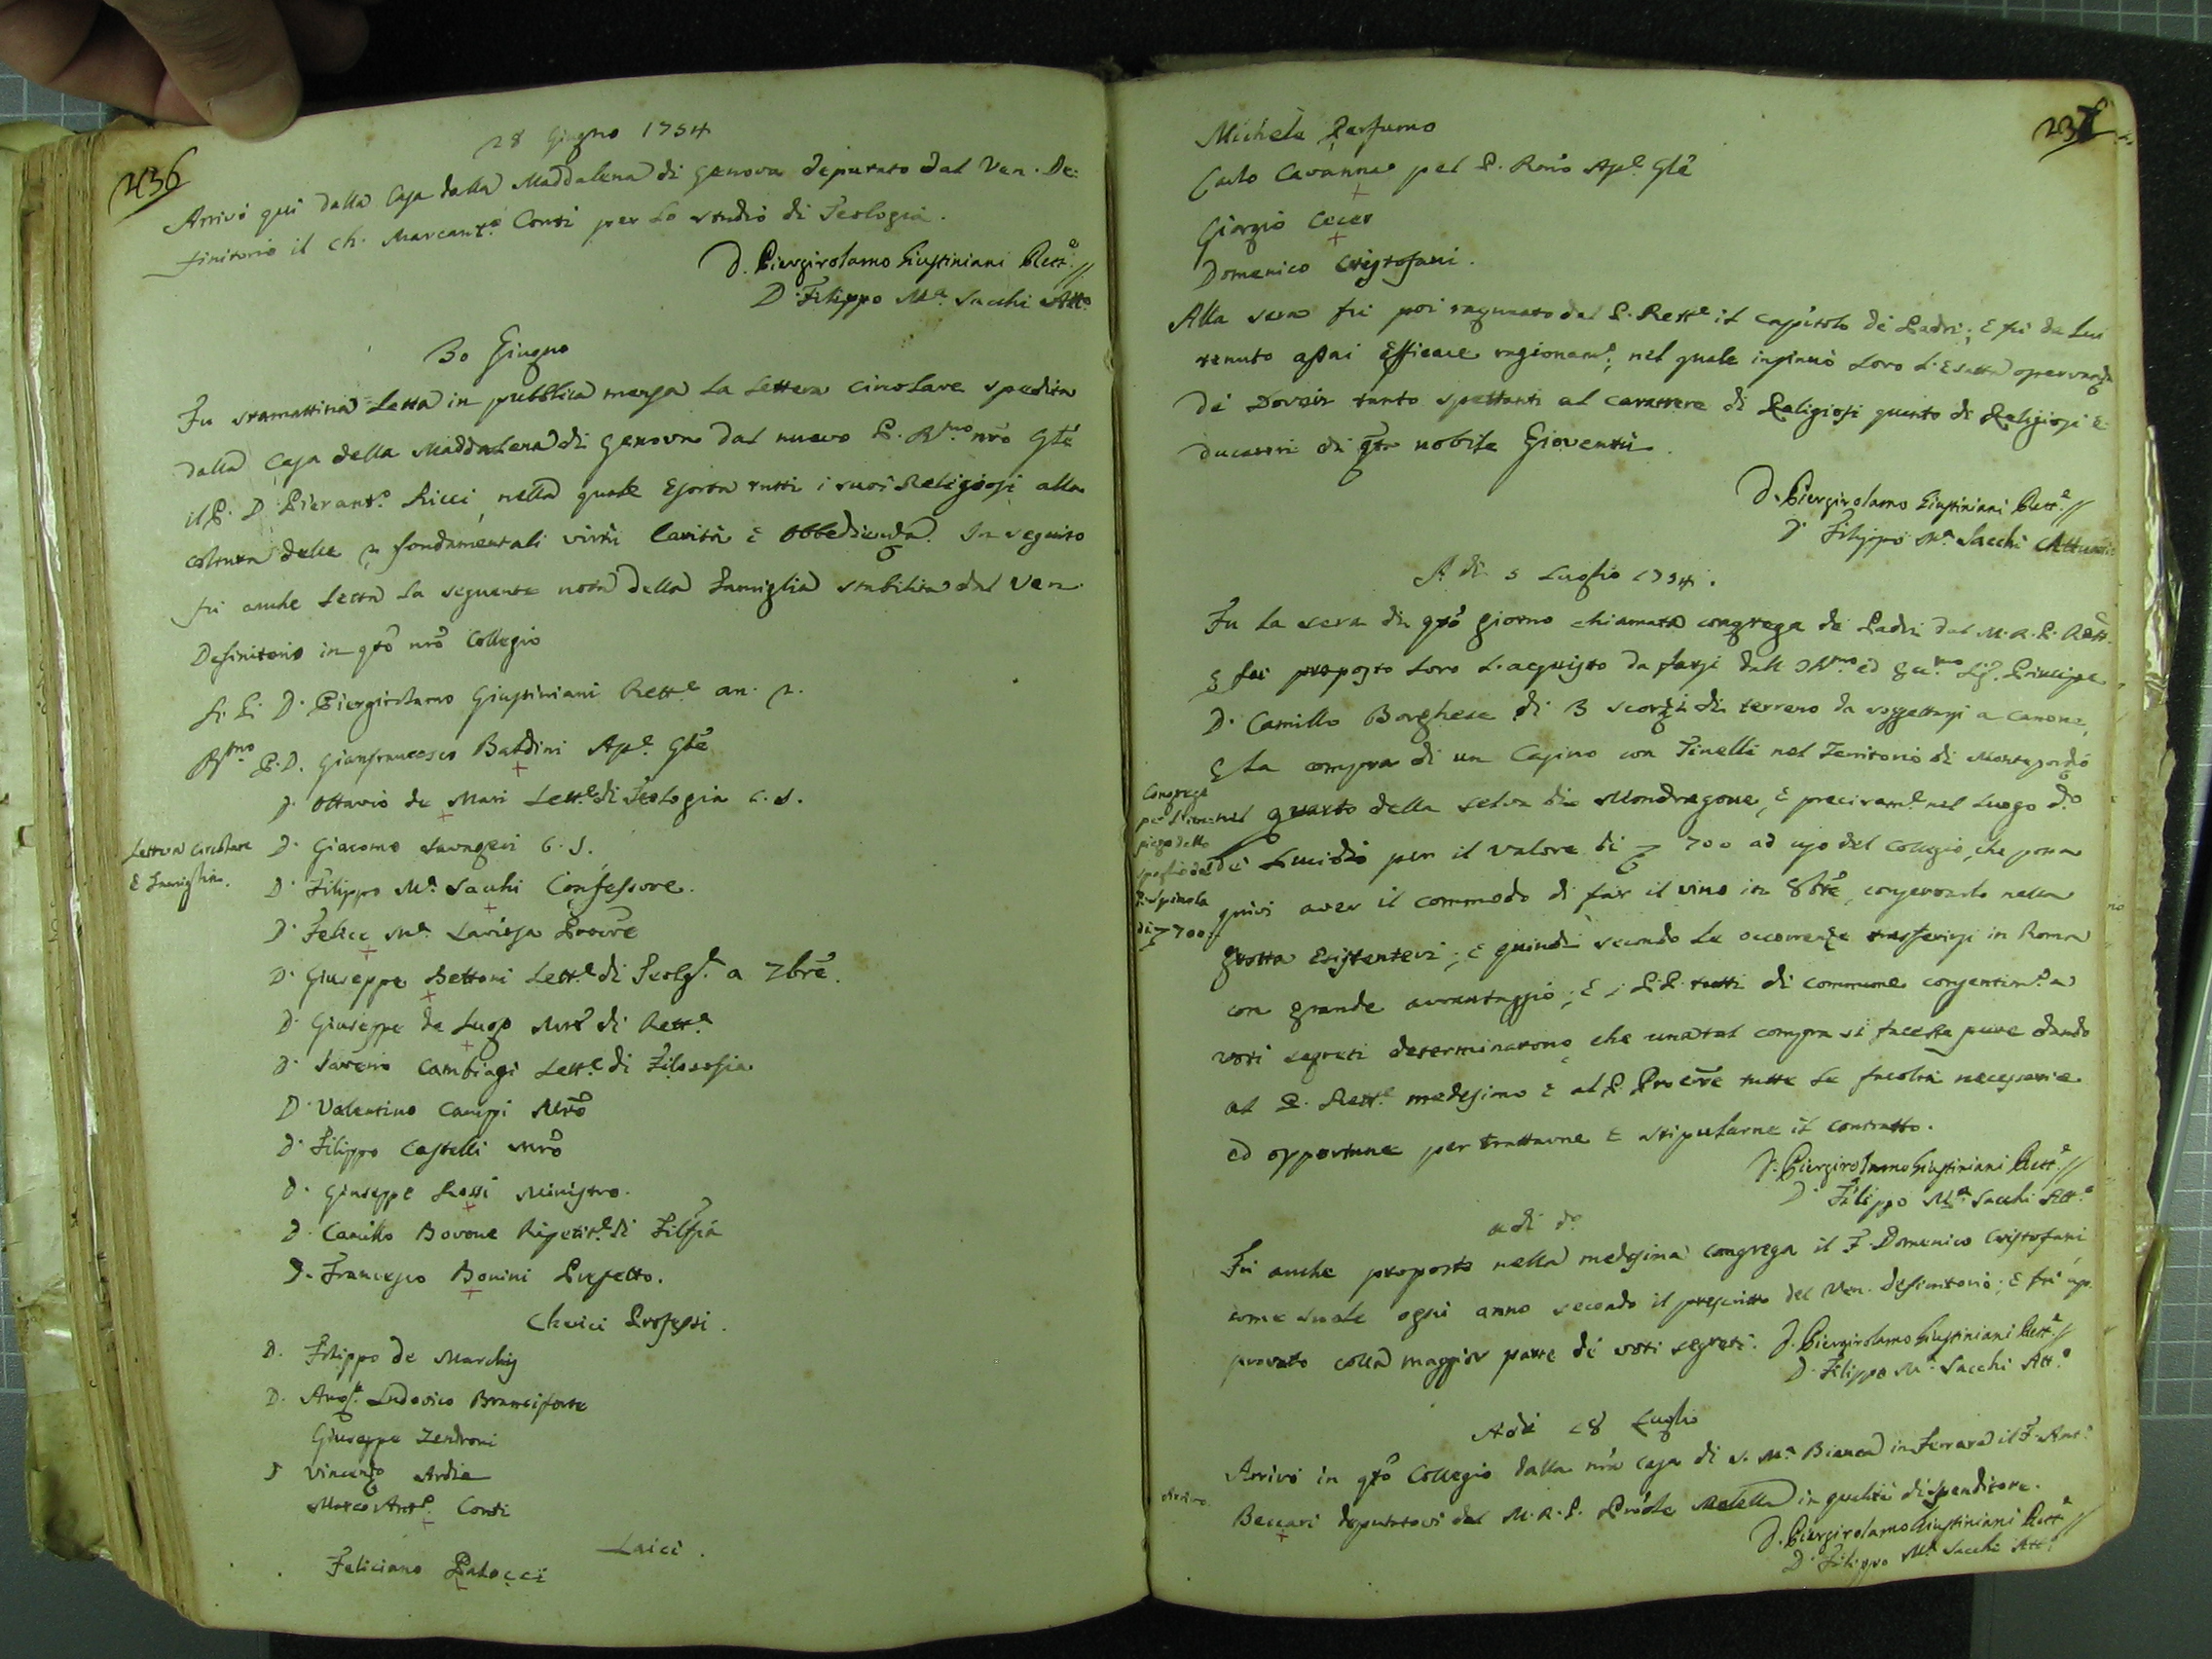 236
28 Giugno 1754
Arrivò qui dalla Casa della Maddalena di Genova deputato dal Ven. De:
finitorio il Ch. Marcant.o Conti per lo studio di Teologia.
D. Piergirolamo Giustiniani Rett.e
D. Filippo M.a Sacchi Att.o
30 Giugno
Fu stamattina letta in pubblica mensa la lettera circolare spedita
dalla Casa della Maddalena di Genova dal nuovo P. R.mo nro Gle
il P. D. Pierant.o Ricci, nella quale esorta tutti i suoi Religiosi alla
coltura delle 2 fondamentali virtù Carità e Obbedienza. In seguito
fu anche letta la seguente nota della Famiglia stabilita dal Ven.
Definitorio in qto nro Collegio
D. Piergirolamo Giustiniani Rett.e an. 2.
R.mo P. D. Gianfrancesco Baldini Ap.e Gle
D. Ottavio de Mari Lett.e di Teologia C. S.
Lettera circolare
e Famiglia.
D. Giacomo C. S.
D. Filippo M.a Sacchi Confessore.
D. Felice M.a Procre
D. Giuseppe Bettoni Lett.e di a 7bre.
D. Giuseppe de Lugo Mro di Rett.a
D. Saverio Cambiagi Lett.e di Filosofia
D. Valentino Campi Mro
D. Filippo Castelli Mro
D. Giuseppe Rossi Ministro.
D. Camillo Bovone Ripetit.e di Filfia
D. Francesco Bonini Prefetto.
Cherici Professi.
D. Filippo de Marchis
D. Ludovico Branciforte
Giuseppe Zendroni
Vincenzo Ardia
Marco Ant.o Conti
Laici.
Feliciano Palocci
237
Michele Parfumo
Carlo Cavanna pel P. Rmo Ap.e Gle
Giorgio
Domenico Cristofani.
Alla sera fu poi ragunato dal P. Rett.e il Capitolo de Padri; e fu da lui
tenuto assai efficace ragionam.o, nel quale insinuò loro l'esatta osservanza
de doveri tanto spettanti al carattere di Religiosi quanto di Religiosi e:
ducatori di qta nobile Gioventù.
D. Piergirolamo Giustiniani Rett.e
D. Filippo M.a Sacchi Attuario
A di 5 Luglio 1754.
Fu la sera di qto giorno chiamata congrega de Padri dal M. R. P. Rett.
e fu proposto loro l'acquisto da farsi dall' ed Ecc.mo Sig. Principe
D. Camillo Borghese di 3 scorzi di terreno da soggettarsi a canone,
e la compra di un Casino con Tinelli nel Territorio di
nel quarto della selva di Mondragone, e precisam.e nel luogo d.o
Congrega
dello
spoglio del
P. Spinola
di 700
de Lucidi per il valore di 700 ad uso del Collegio, che possa
quivi aver il commodo di far il vino in 8bre, conservarlo nella
grotta esistentevi; e quindi secondo le occorrenze trasferirsi in Roma
con grande avvantaggio; e i P.P. tutti di commune consentim.o a
voti segreti determinarono, che una tal compra si facesse pure dando
al P. Rett.e medesimo e al P. Procre tutte le facoltà necessarie
ed opportune per trattarne e stipularne il contratto.
D. Piergirolamo Giustiniani Rett.e
D. Filippo M.a Sacchi Att.o
adi d.o
Fu anche proposto nella medesima congrega il F. Domenico Cristofani
come suole ogni anno secondo il prescritto del Ven. Definitorio; e fu ap:
provato colla maggior parte de voti segreti.
D. Piergirolamo Giustiniani Rett.e
D. Filippo M.a Sacchi Att.o
Adi 28 Luglio
Arrivo.
Arrivò in qto Collegio dalla nra Casa di S. M.a Bianca in Ferrara il F. Ant.o
Beccari deputatovi dal M. R. P. Prole in qualità di spenditore.
D. Piergirolamo Giustiniani Rett.e
D. Filippo M.a Sacchi Att.o